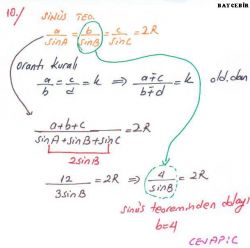 BAYCEBİR
10./ SİNÜS TEO.
a/sinA = b/sinB = c/sinC = 2R
Orantı kuralı
a/b = c/d = k ⇒ a+c/b+d = k old.dan
a+b+c/sinA+sinB+sinC = 2R
2sinB
12/3sinB = 2R ⇒ 4/sinB = 2R
sinüs teoreminden dolayı
b=4
CEVAP: C